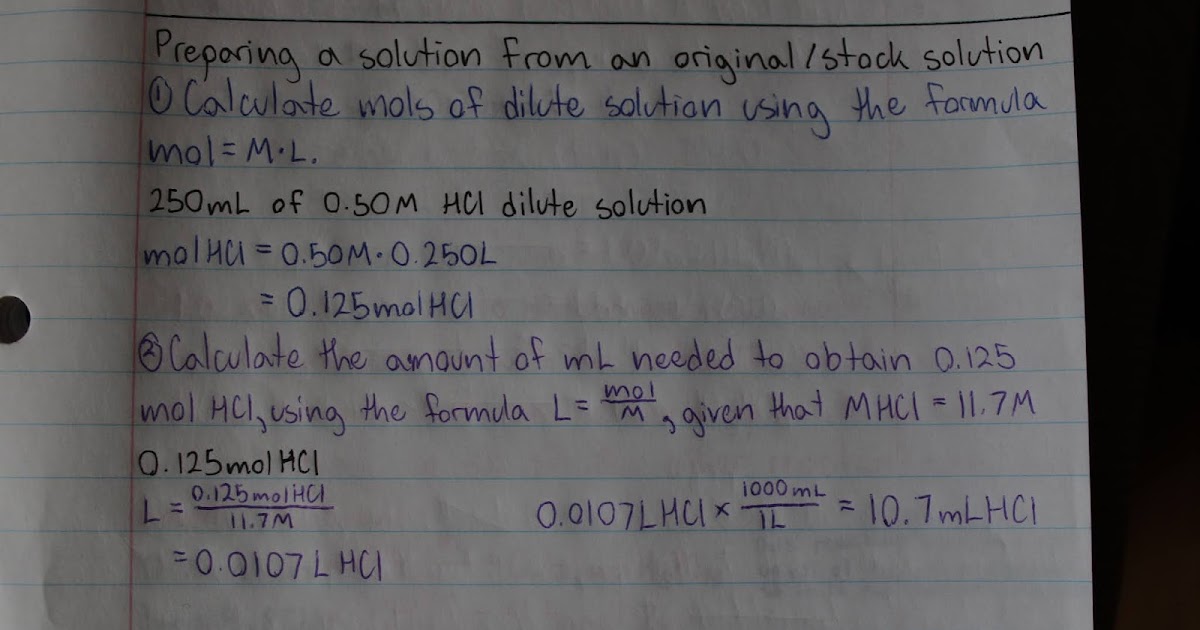 Preparing a solution from an original/stock solution
① Calculate mols of dilute solution using the formula
mol = M·L.
250mL of 0.50M HCl dilute solution
mol HCl = 0.50M·0.250L
= 0.125mol HCl
② Calculate the amount of mL needed to obtain 0.125
mol HCl, using the formula L = mol/M, given that MHCl = 11.7M
0.125mol HCl
L = 0.125mol HCl/11.7M 0.0107L HCl × 1000mL/1L = 10.7mL HCl
= 0.0107 L HCl